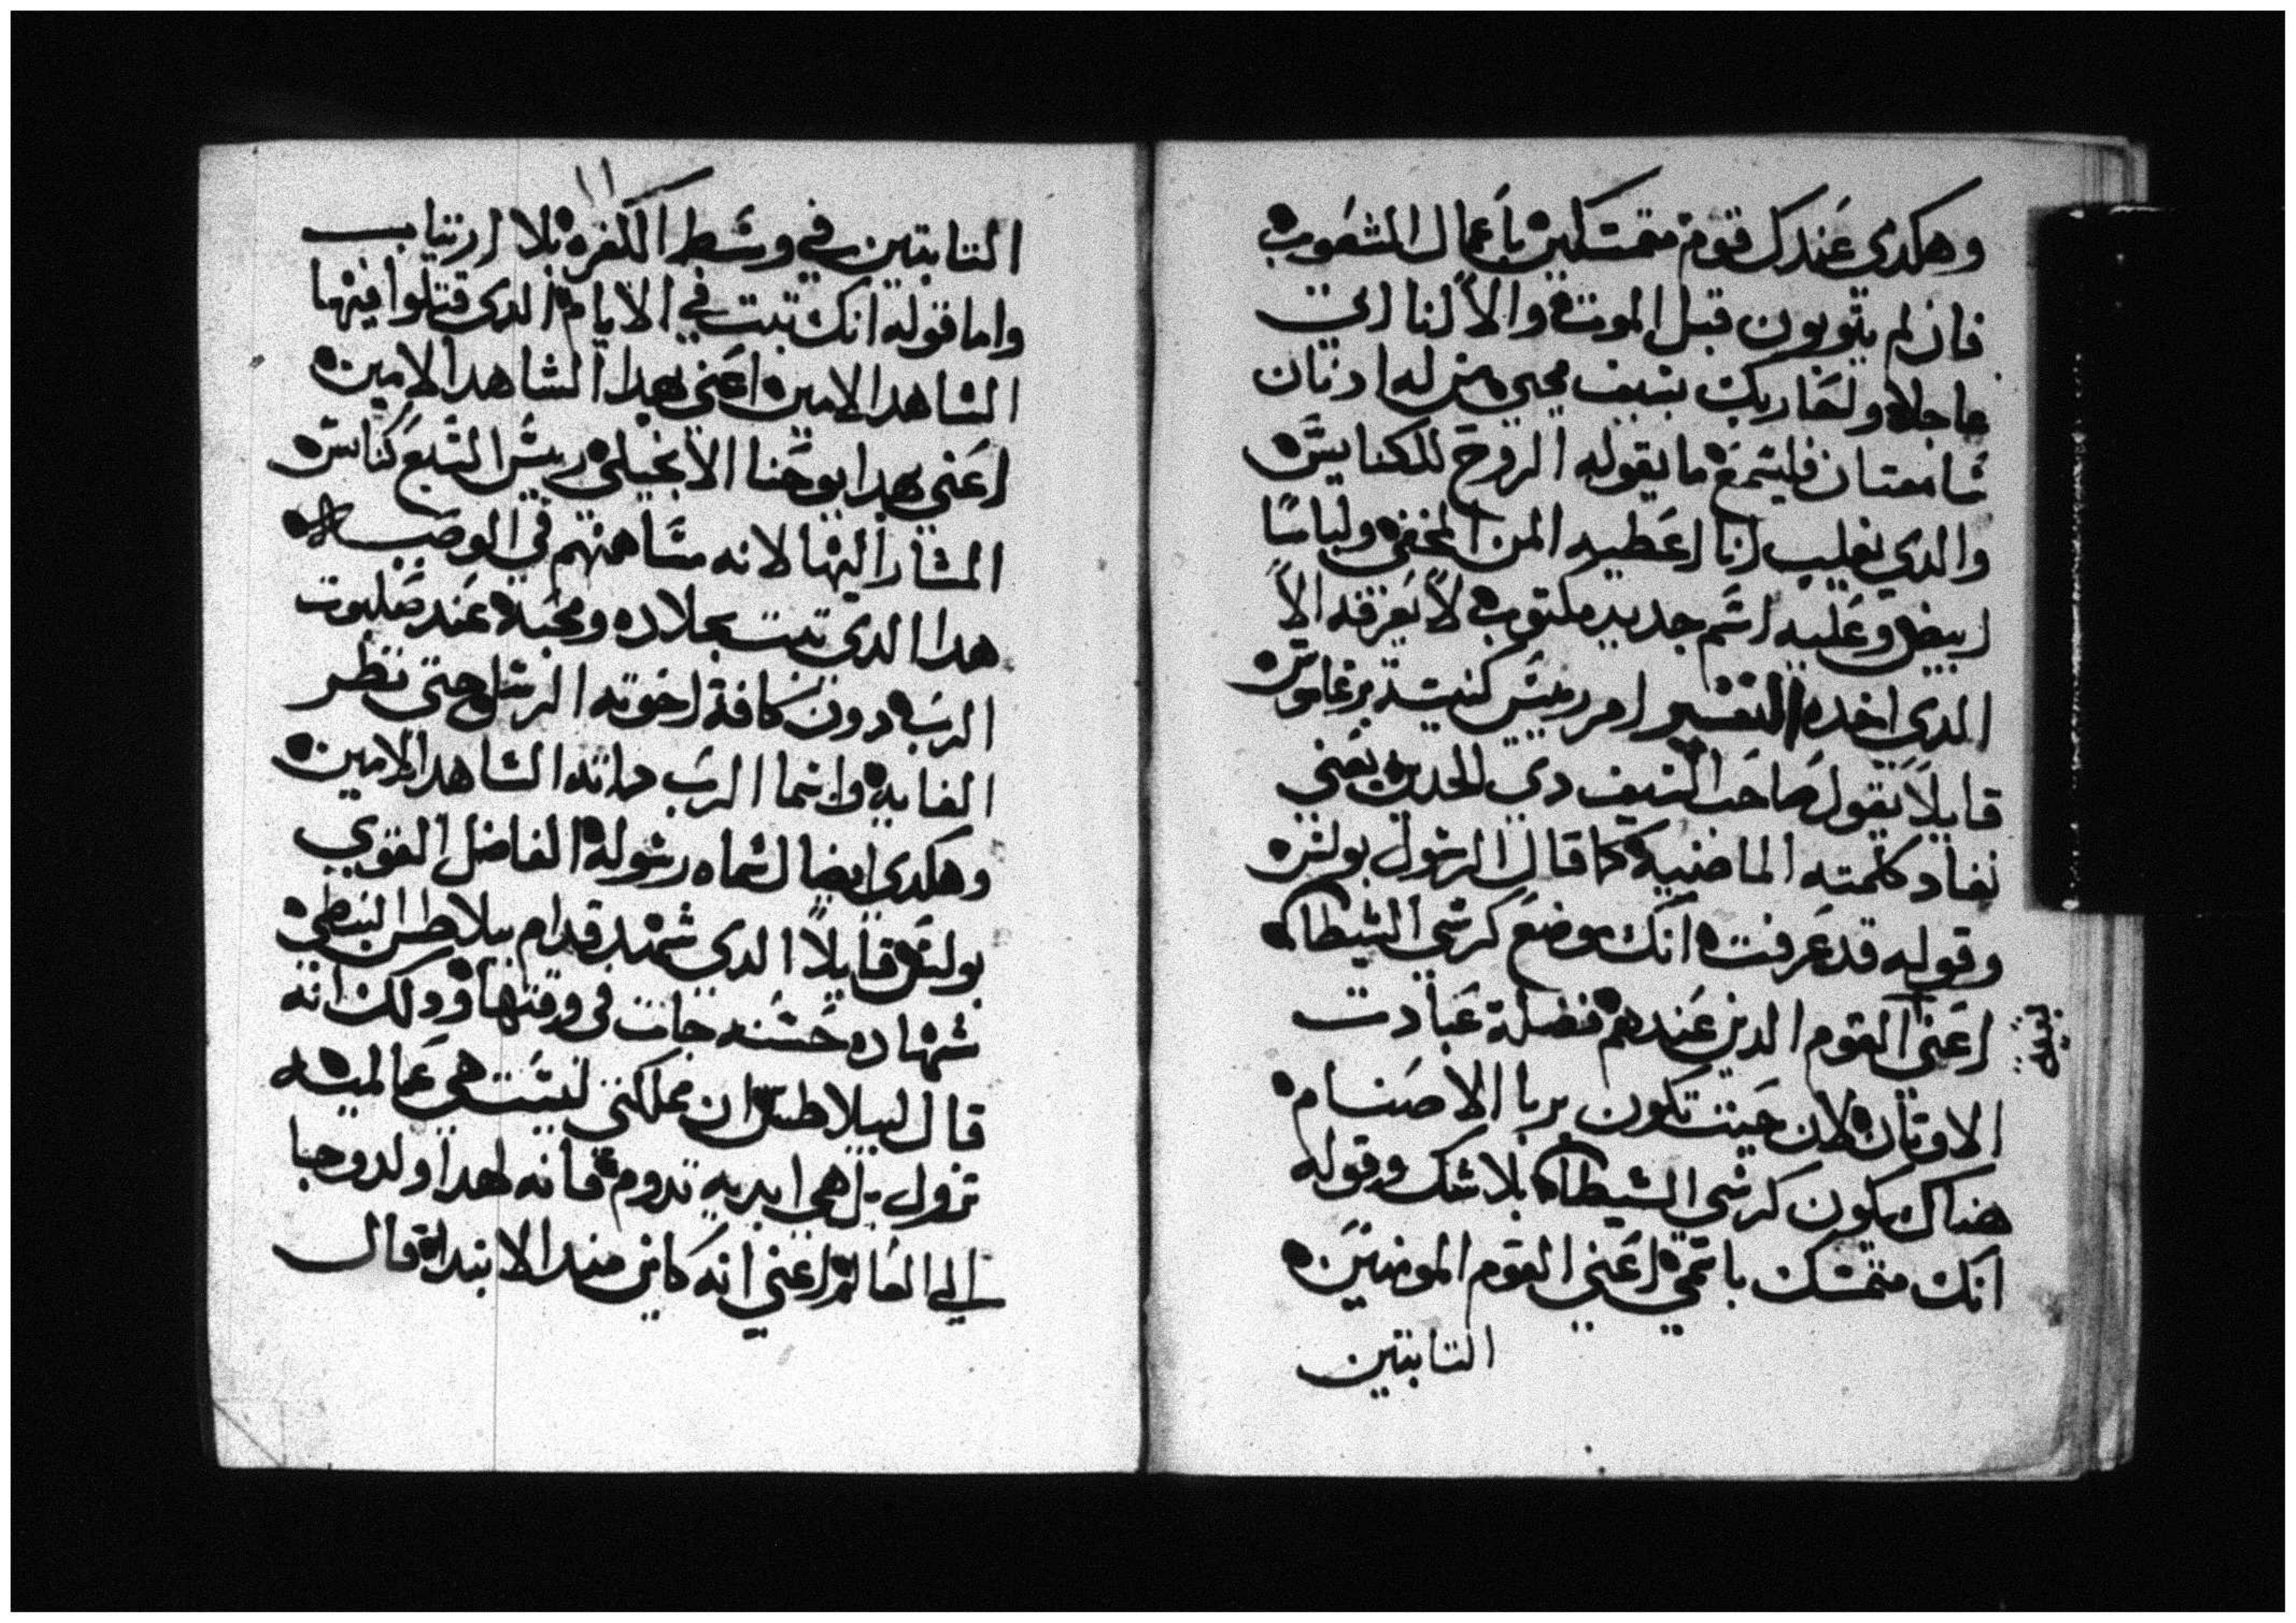 وهكدى عندك قوم متمسكين باعمال الشعوب
فان لم يتوبون قبل الموت والا لنا اتي
عاجلا ولتحاربك بسيف محيي من له ادنان
سامعتان فليسمع ما يقوله الروح للكنايس
والدي يغلب انا اعطيه المن المخفي ولباسا
ابيض وعليه اسم جديد مكتوب لا يعرفه الا
الدي اخده التفسير امر رييس كنيسة برغاموس
قايلا يقول صاحب السيف دي الحدين يعني
نفاد كلمته الماضيه كما قال الرسول بولس
وقوله قد عرفت انك موضع كرسي الشيطان
اعني القوم الدين عندهم فضلة عبادت
بقية
الاوتان لان حيت تكون بربا الاصنام
هناك يكون كرسي الشيطان بلا شك وقوله
انك متمسك باسمي اعني القوم المومنين
التابتين
١١
التابتين في وسط الكفره بلا ارتياب
واما قوله انك تبت في الايام الدي قتلوا فيها
الشاهد الامين اعني بهدا الشاهد الامين
اعني بهدا يوحنا الانجيلي رييس السبع كنايس
المشار اليها لانه مساهمهم في الوصب
هدا الدي تبت بجلاده ومحبة عند صلبوت
الرب دون كافة اخوته الرسل وحتي نظر
الغايه وانما الرب داته الشاهد الامين
وهكدى ايضا لسماه رسوله الفاضل القوي
بولس قايلا الدي شهد قدام بيلاطس البنطي
شهاده حسنه جات في وقتها ودلك انه
قال لبيلاطس ان مملكتي ليست هي عالميه
تزول بل هي ابديه تدوم فانه لهدا ولدو جبا
الي العالم اعني انه كاين مند الابتدا قال